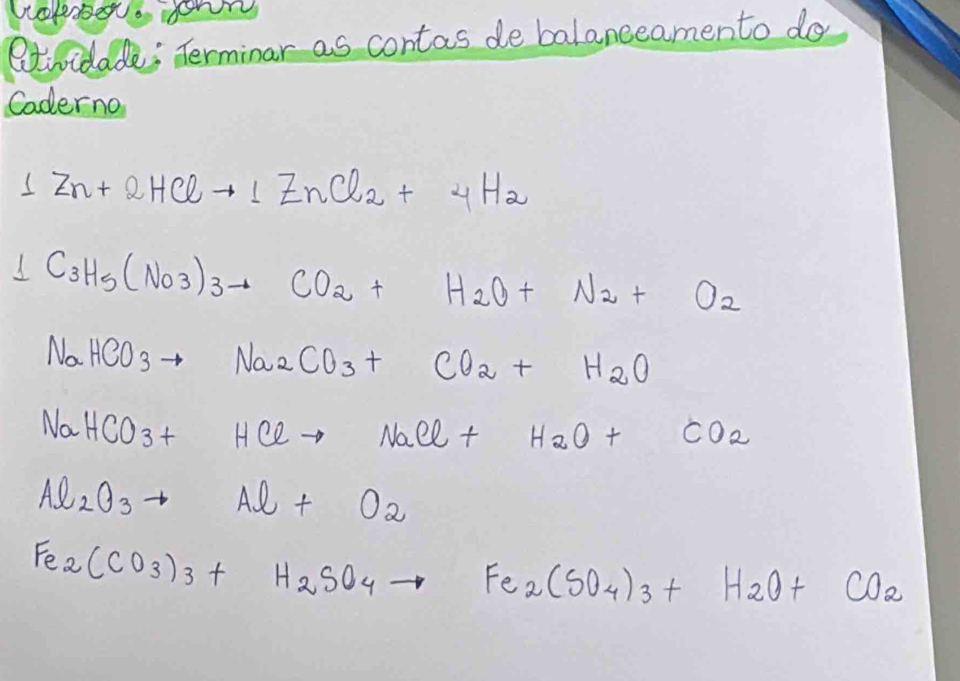 Professor: John
Atividade: Terminar as contas de balanceamento do
Caderno
1 Zn + 2HCl → 1 ZnCl2 + 4H2
1 C3H5(No3)3 → CO2 + H2O + N2 + O2
NaHCO3 → Na2CO3 + CO2 + H2O
NaHCO3 + HCl → NaCl + H2O + CO2
Al2O3 → Al + O2
Fe2(CO3)3 + H2SO4 → Fe2(SO4)3 + H2O + CO2